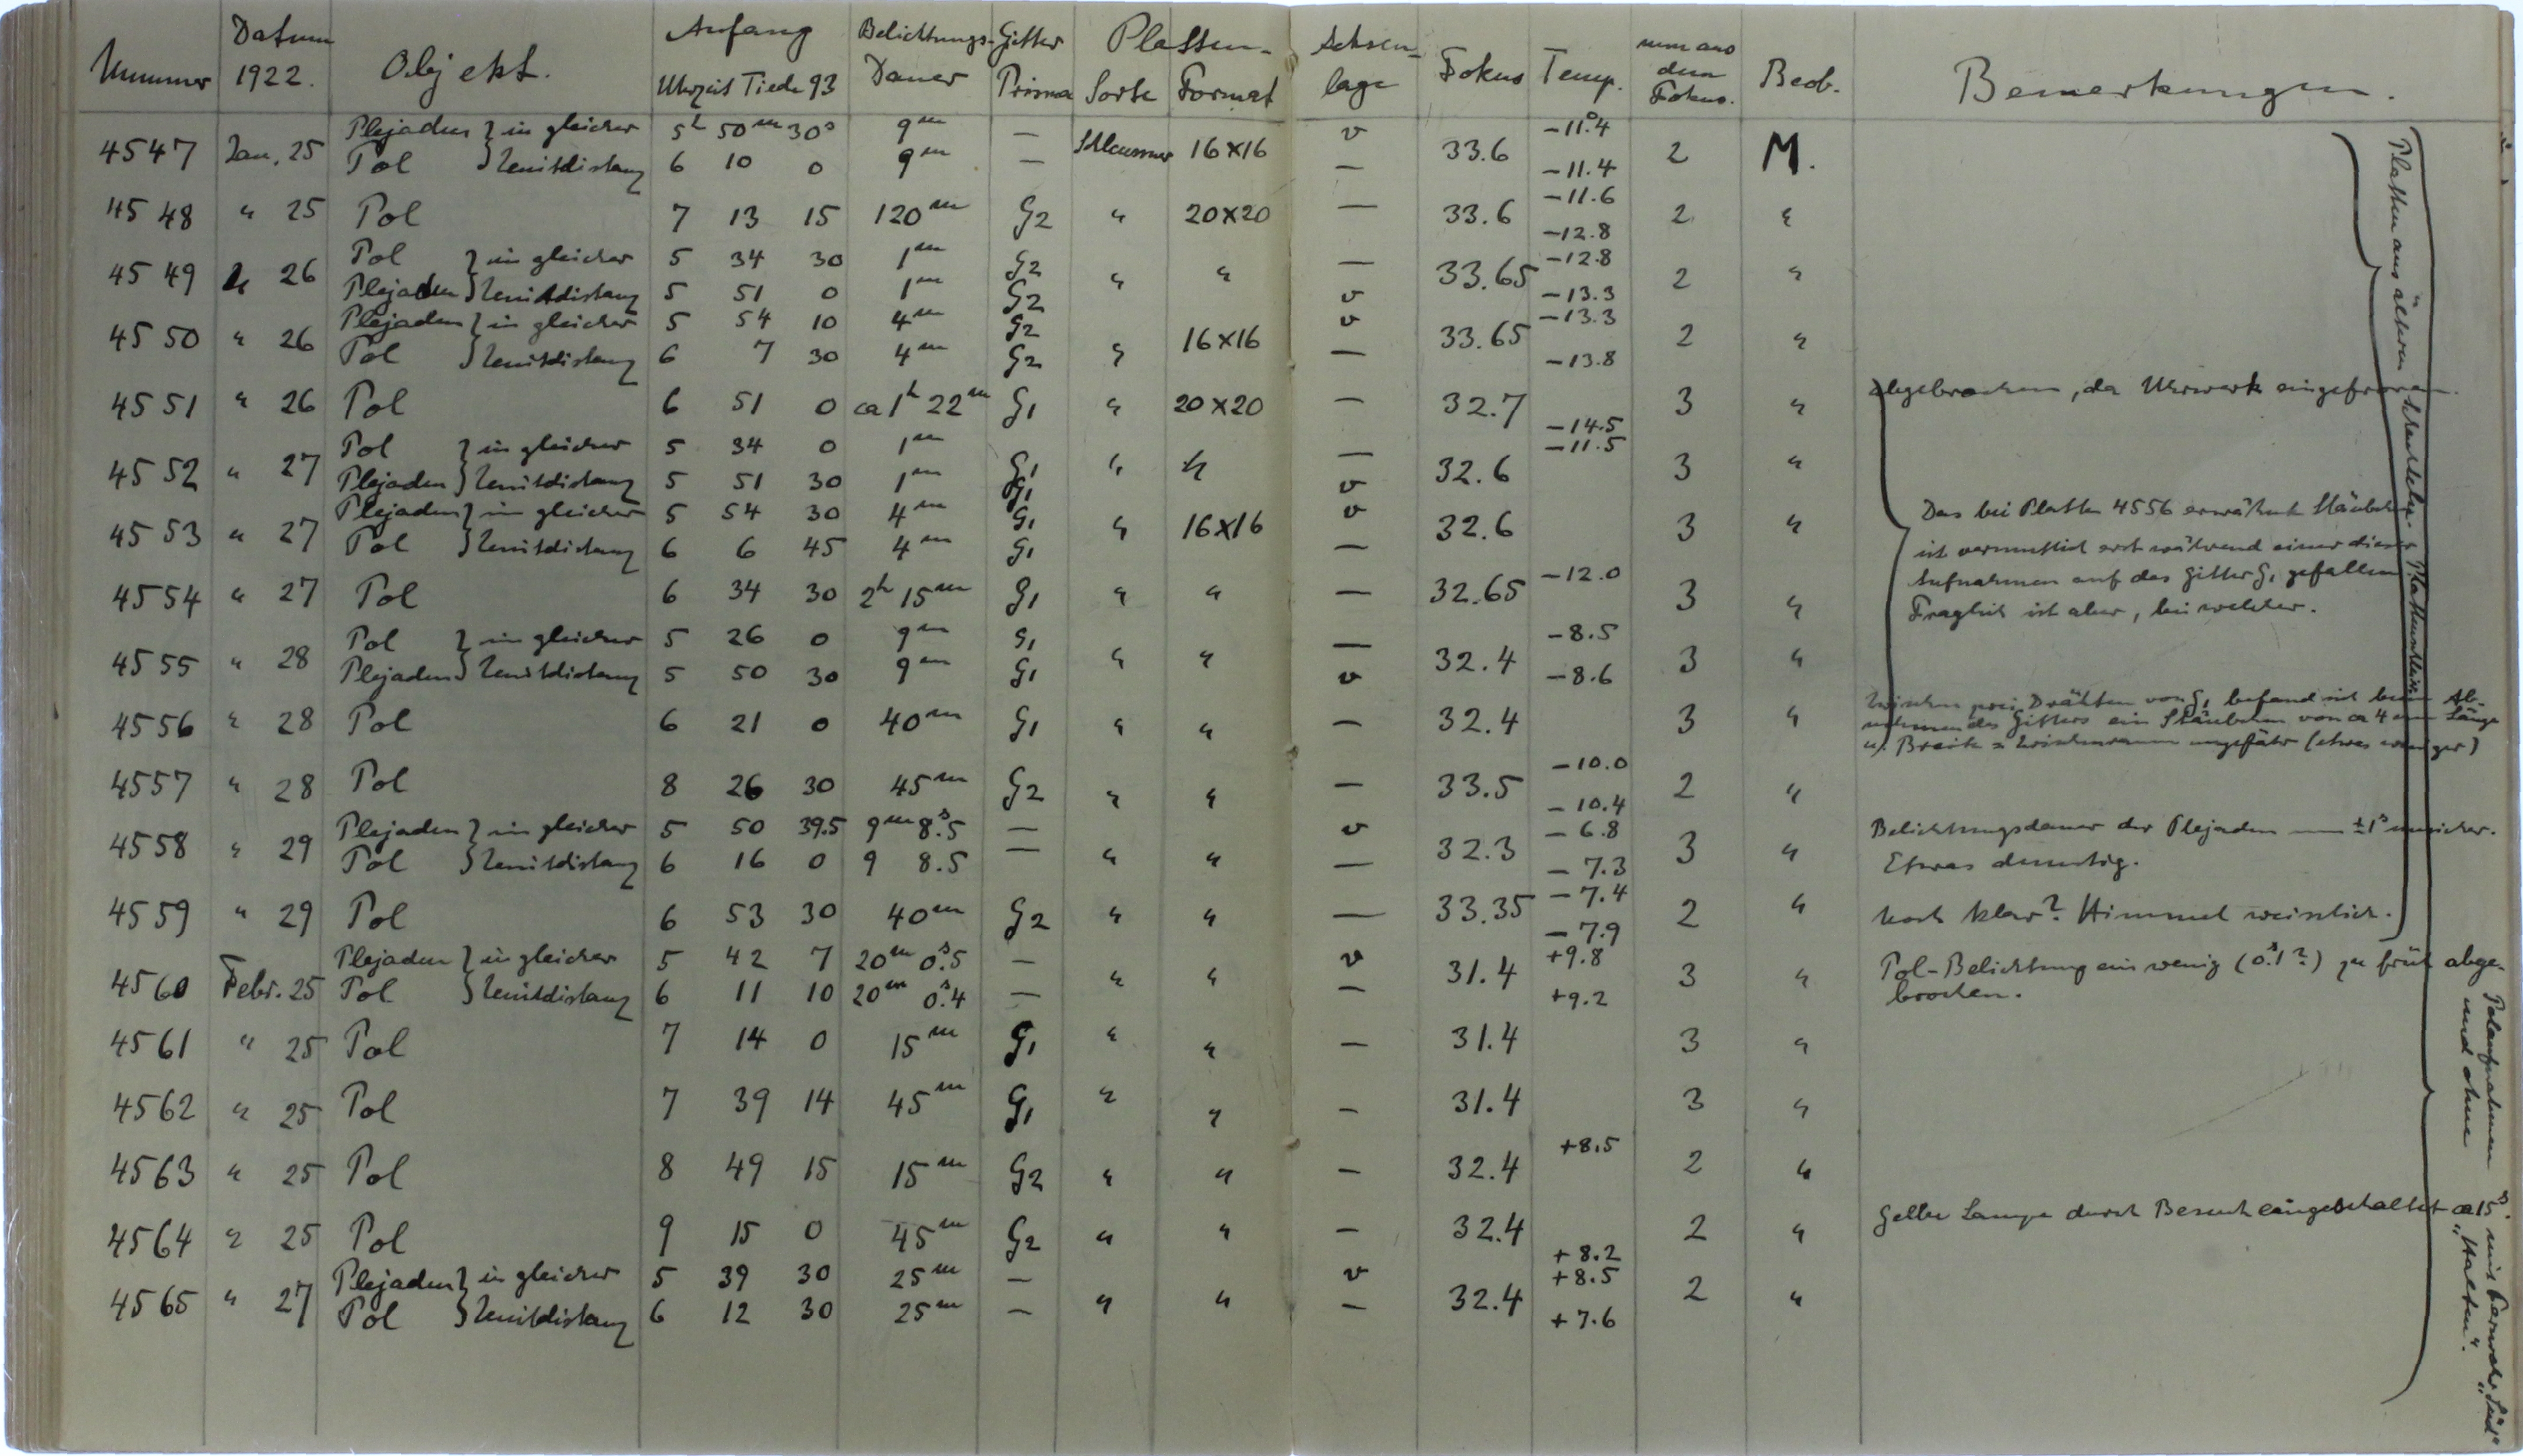 Nummer Datum 1922. Objekt. Anfang Uhrzeit Tiede 93 Belichtungs-Dauer Gitter Prisma Platten-Sorte Format Achsenlage Fokus Temp. mm aus dem Fokus. Beob. Bemerkungen.
4547 Jan. 25 Plejaden } in gleicher 5h 50m 30s 9m — Schleussner 16×16 v 33.6 -11.°4 2 M.
Pol } Zenitdistanz 6 10 0 9m — — -11.4
4548 " 25 Pol 7 13 15 120m G2 " 20×20 — 33.6 -11.6 -12.8 2 "
4549 " 26 Pol } in gleicher 5 34 30 1m G2 " " — 33.65 -12.8 2 "
Plejaden } Zenitdistanz 5 51 0 1m G2 v -13.3
4550 " 26 Plejaden } in gleicher 5 54 10 4m G2 " 16×16 v 33.65 -13.3 2 "
Pol } Zenitdistanz 6 7 30 4m G2 — -13.8
4551 " 26 Pol 6 51 0 ca 1h 22m G1 " 20×20 — 32.7 -14.5 3 " abgebrochen, da Uhrwerk eingefroren.
4552 " 27 Pol } in gleicher 5 34 0 1m G1 " " — 32.6 -11.5 3 "
Plejaden } Zenitdistanz 5 51 30 1m G1 v
4553 " 27 Plejaden } in gleicher 5 54 30 4m G1 " 16×16 v 32.6 3 " Das bei Platte 4556 erwähnte Stäubchen
Pol } Zenitdistanz 6 6 45 4m G1 — ist vermutlich erst während einer dieser
4554 " 27 Pol 6 34 30 2h 15m G1 " " — 32.65 -12.0 3 " Aufnahmen auf das Gitter G1 gefallen
Fraglich ist aber, bei welcher.
4555 " 28 Pol } in gleicher 5 26 0 9m G1 " " — 32.4 -8.5 3 "
Plejaden } Zenitdistanz 5 50 30 9m G1 v -8.6
4556 " 28 Pol 6 21 0 40m G1 " " — 32.4 3 " Zwischen zwei Drähten von G1 befand sich beim Ab-
nehmen des Gitters ein Stäubchen von ca 4 mm Länge
u. Breite = Zwischenraum ungefähr (etwas weniger)
4557 " 28 Pol 8 26 30 45m G2 " " — 33.5 -10.0 -10.4 2 "
4558 " 29 Plejaden } in gleicher 5 50 39.5 9m 8.s5 — " " v 32.3 -6.8 3 " Belichtungsdauer der Plejaden um ±1s unsicher.
Pol } Zenitdistanz 6 16 0 9 8.5 — — -7.3 Etwas dunstig.
4559 " 29 Pol 6 53 30 40m G2 " " — 33.35 -7.4 -7.9 2 " Noch klar? Himmel weisslich.
4560 Febr. 25 Plejaden } in gleicher 5 42 7 20m 0.s5 — " " v 31.4 +9.8 3 " Pol-Belichtung ein wenig (0.s1?) zu früh abge-
Pol } Zenitdistanz 6 11 10 20m 0.s4 — — +9.2 brochen.
4561 " 25 Pol 7 14 0 15m G1 " " — 31.4 3 "
4562 " 25 Pol 7 39 14 45m G1 " " — 31.4 3 "
4563 " 25 Pol 8 49 15 15m G2 " " — 32.4 +8.5 2 "
4564 " 25 Pol 9 15 0 45m G2 " " — 32.4 +8.2 2 " Gelbe Lampe durch Besuch eingeschaltet ca 15s.
4565 " 27 Plejaden } in gleicher 5 39 30 25m — " " v 32.4 +8.5 2 "
Pol } Zenitdistanz 6 12 30 25m — — +7.6
Platten aus älteren Schachteln
Polaufnahmen mit
und ohne "Halten".